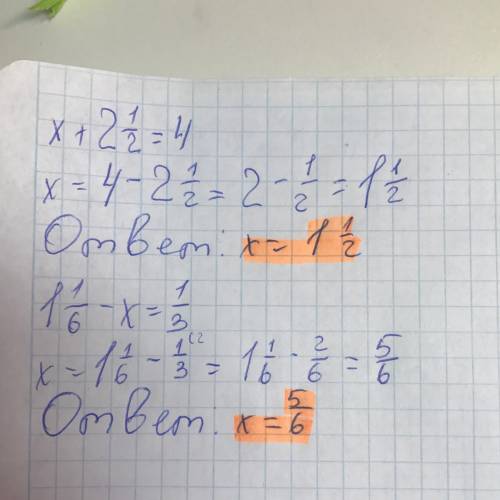 x + 2 1/2 = 4
x = 4 - 2 1/2 = 2 - 1/2 = 1 1/2
Ответ: x = 1 1/2
1 1/6 - x = 1/3
x = 1 1/6 - 1/3 (2 = 1 1/6 - 2/6 = 5/6
Ответ: x = 5/6